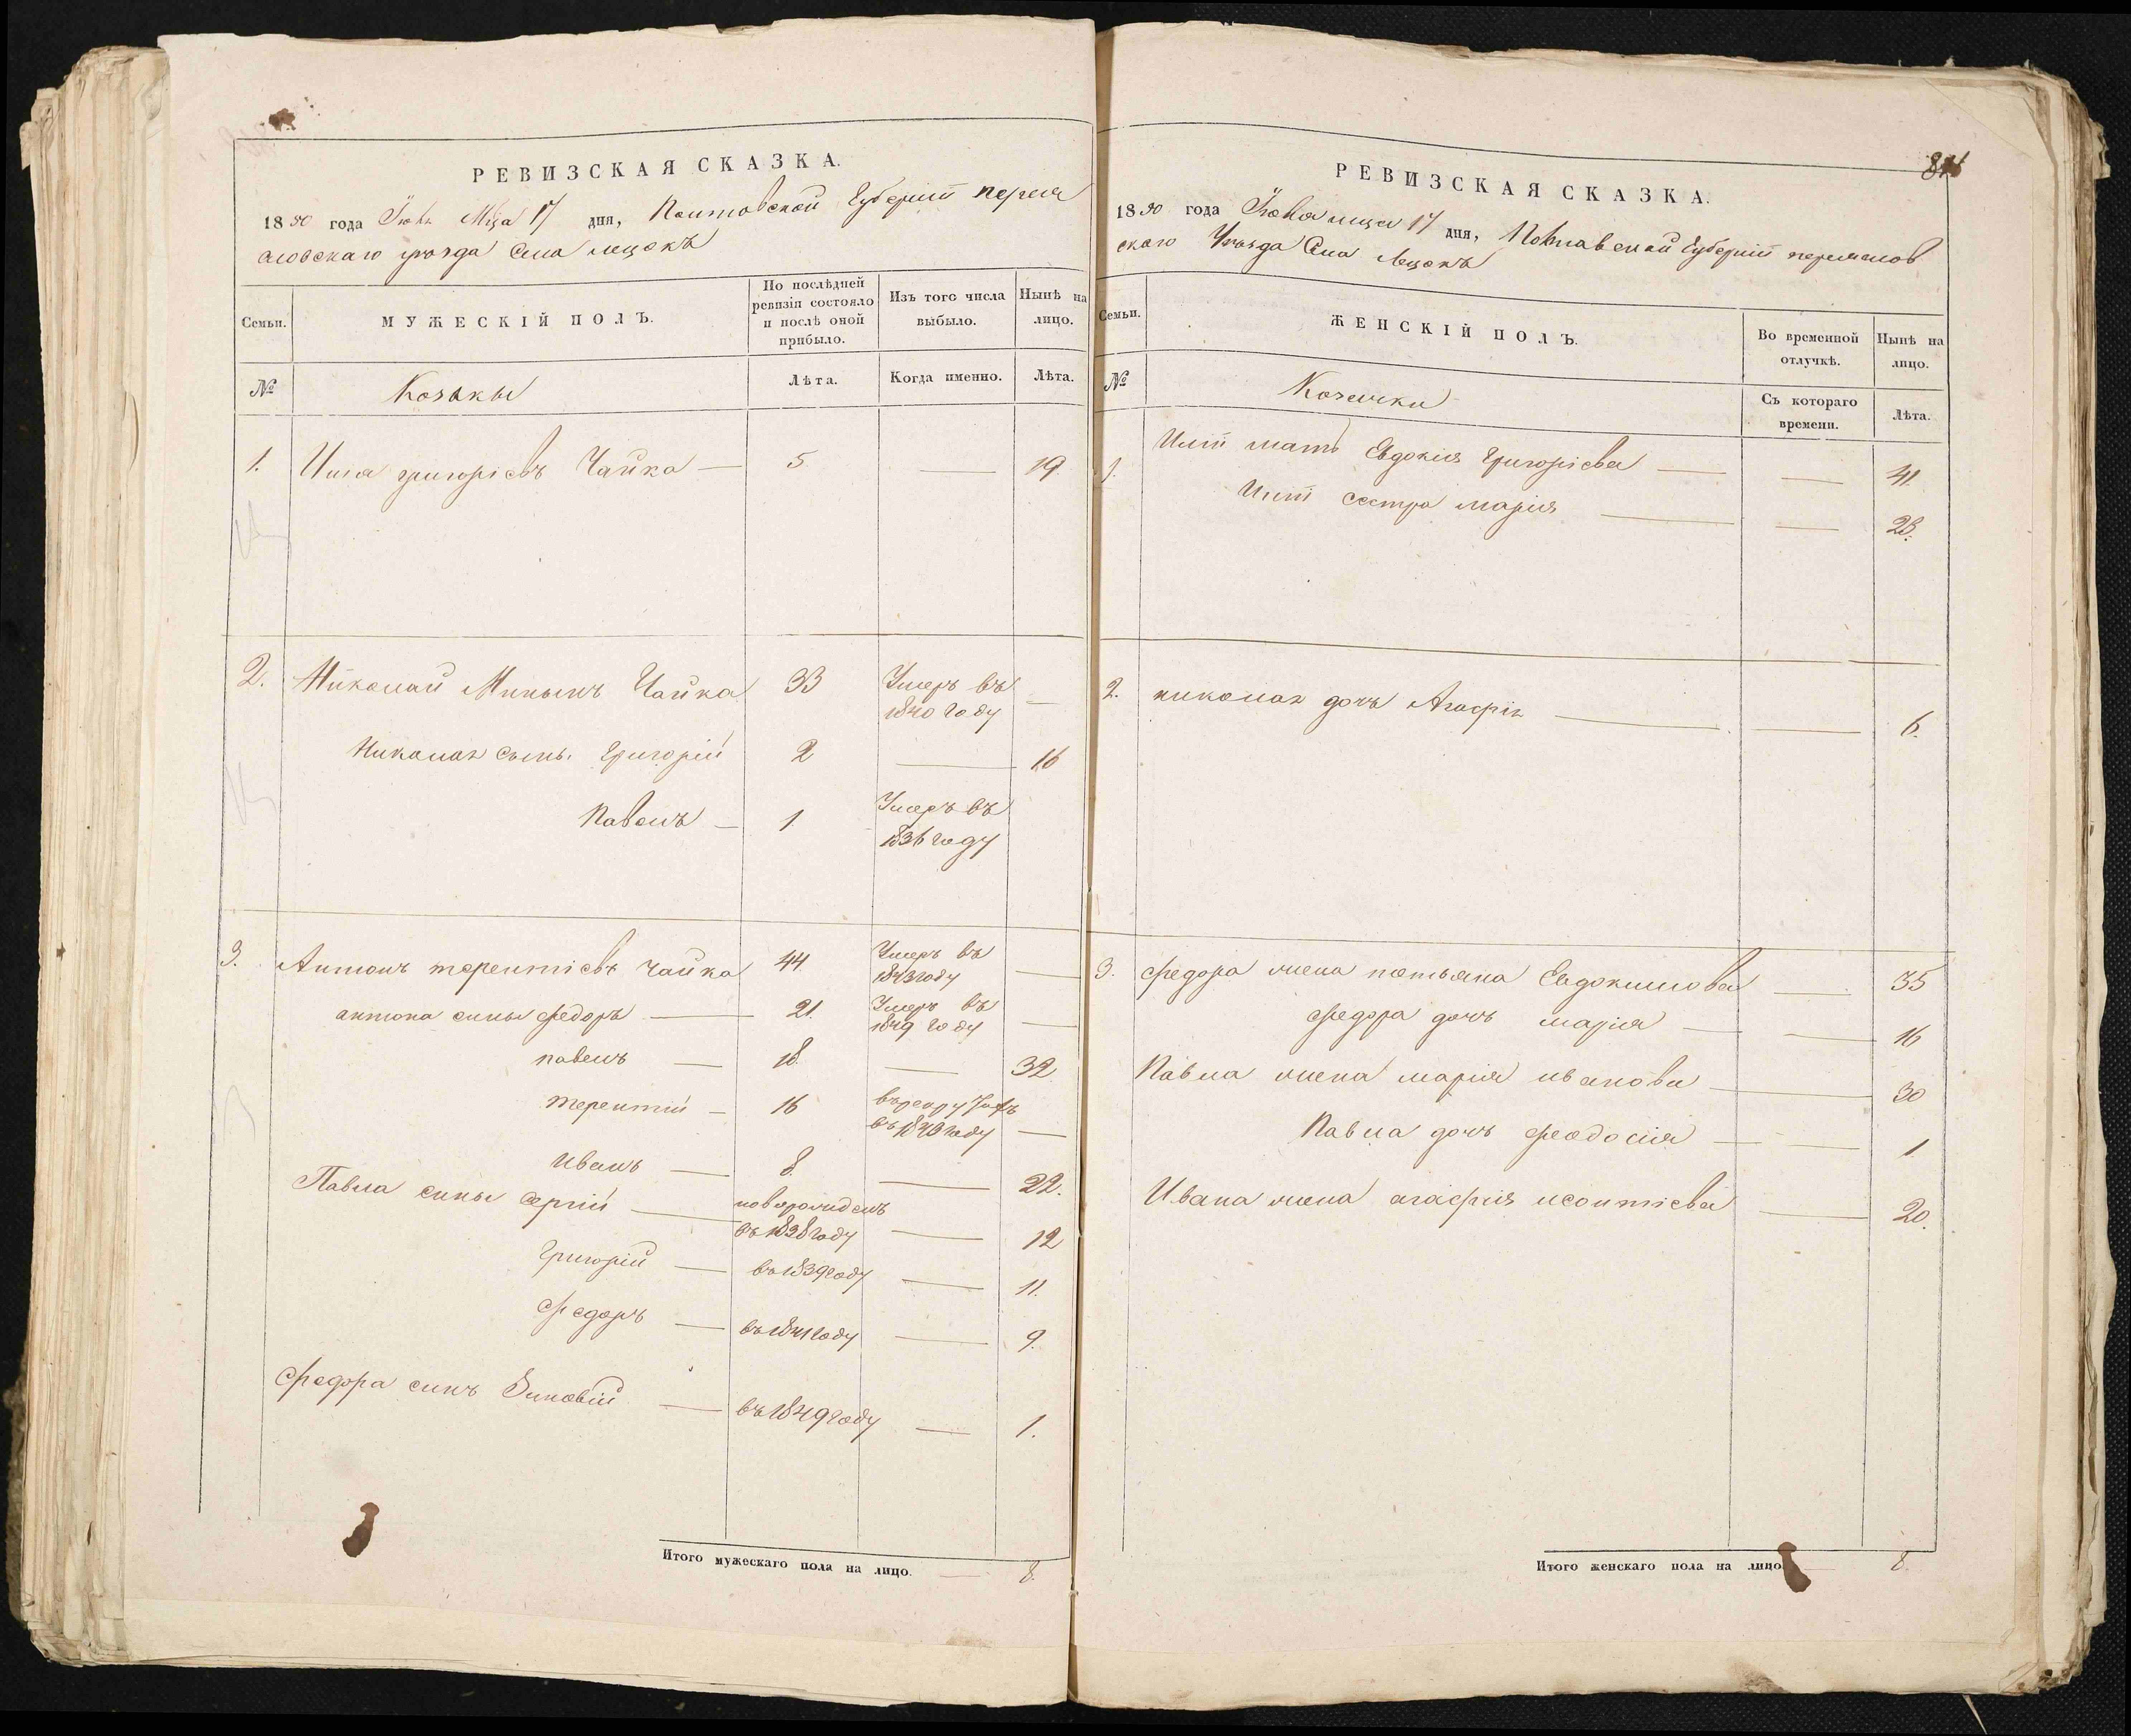 РЕВИЗСКАЯ СКАЗКА.
1850 года Мца 17 дня, Полтавской Губерніи Переяс
ловскаго уезда Села Лецокъ
Семьи. МУЖЕСКІЙ ПОЛЪ. По послѣдней ревизіи состояло и послѣ оной прибыло. Изъ того числа выбыло. Нынѣ на лицо.
№ Козакы Лѣта. Когда именно. Лѣта.
1. Илья григоріевъ Чайка — 5 — 19
2. Николай Мининъ Чайка 33 Умеръ въ 1840 году —
Николая сынъ Григорій 2 — 16
Павелъ — 1 Умеръ въ 1836 году
3. Антонъ терентіевъ чайка 44 Умеръ въ 1843 году —
антона сины федоръ — 21. Умеръ въ 1849 году —
павелъ — 18 — 32
терентій — 16 въ рекруты въ 1840 году —
Иванъ — 8 — 22.
Павла сины Сергій — новорожденъ въ 1838 году — 12
Григорій — въ 1839 году — 11.
Федоръ — въ 1841 году — 9.
Федора синъ Зиновій — въ 1849 году — 1.
Итого мужескаго пола на лицо. — 8.
РЕВИЗСКАЯ СКАЗКА.
1850 года мца 17 дня, Полтавской Губерніи переяслов
скаго Уезда Села Лецокъ
Семьи. ЖЕНСКІЙ ПОЛЪ. Во временной отлучкѣ. Нынѣ на лицо.
№ Козачки Съ котораго времени. Лѣта.
1. Ильи мать Евдокия Григоріева — — 41
Ильи сестра марія — — 23.
2. николая дочь Агафія — — 6.
3. федора жена татьяна Евдокимова — 35
федора дочь марія — — 16
Павла жена марія иванова — 30
Павла дочь феодосія — — 1
Ивана жена агафія леонтіева — 20.
Итого женскаго пола на лицо — 8.